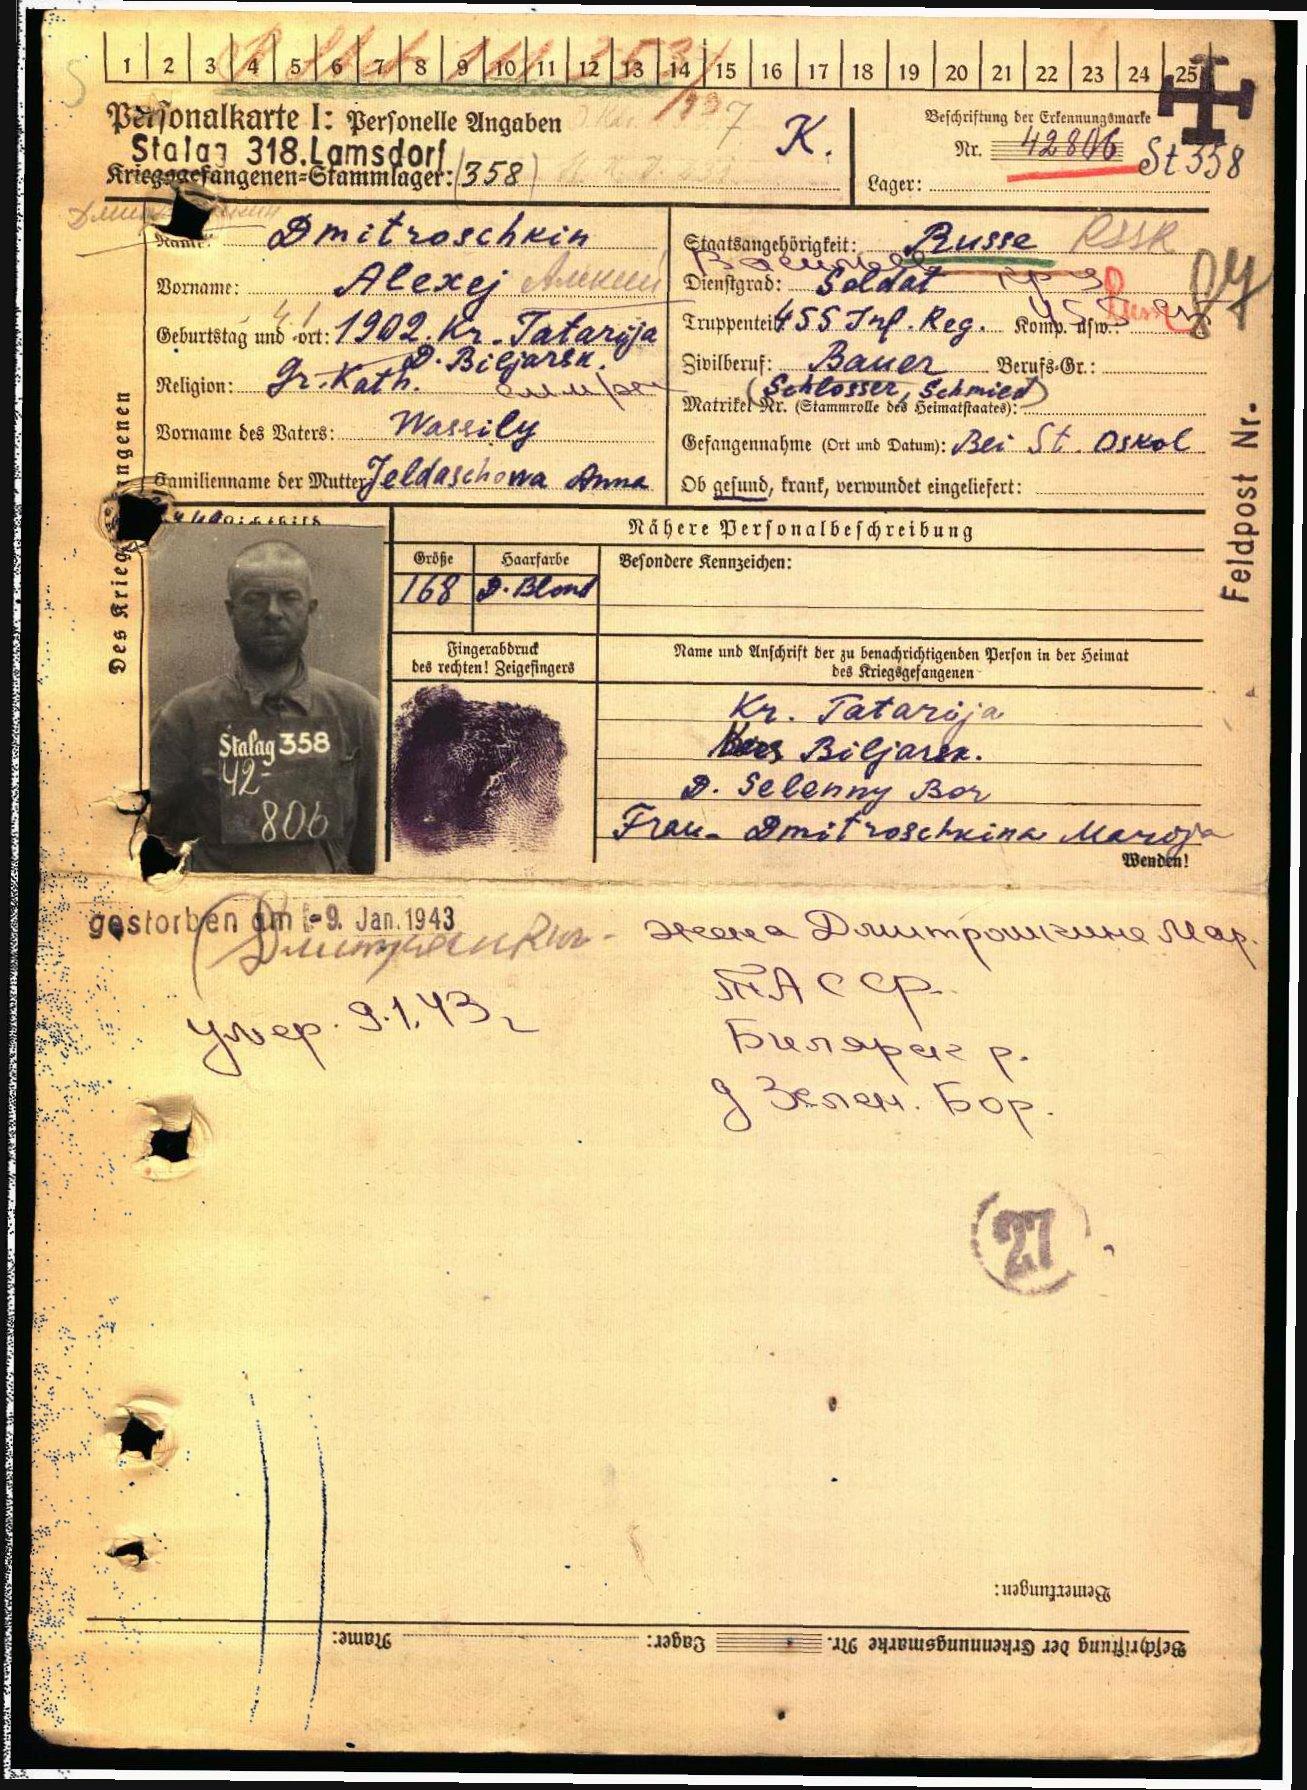 1 2 3 4 5 6 7 8 9 10 11 12 13 14 15 16 17 18 19 20 21 22 23 24 25
Personalkarte I: Personelle Angaben
K.
Beschriftung der Erkennungsmarke
Nr. 42806 St 358
Stalag 318.Lamsdorf
Kriegsgefangenen-Stammlager: (358)
Lager:
Name: Dmitroschkin
Staatsangehörigkeit: Russe
Vorname: Alexej Алексей
Dienstgrad: Soldat
Geburtstag und -ort: 1902. Kr. Tatarija
D. Biljarsk.
Truppenteil: 455 Inf. Reg. Komp. usw.:
Religion: Gr. Kath.
Zivilberuf: Bauer Berufs-Gr.:
(Schlosser, Schmied)
Matrikel Nr. (Stammrolle des Heimatstaates):
Vorname des Vaters: Wassily
Gefangennahme (Ort und Datum): Bei St. Oskol
Familienname der Mutter: Jeldaschowa Anna
Ob gesund, krank, verwundet eingeliefert:
Feldpost Nr.
87
Nähere Personalbeschreibung
Größe Haarfarbe Besondere Kennzeichen:
168 D. Blond
Fingerabdruck
des rechten! Zeigefingers
Name und Anschrift der zu benachrichtigenden Person in der Heimat
des Kriegsgefangenen
Kr. Tatarija
Biljarsk.
D. Selenny Bor
Frau- Dmitroschkina Marija
Wenden!
Stalag 358
42-
806
gestorben am -9. Jan. 1943
жена Дмитрошкина Мар.
ТАССР.
умер. 9.1.43г
Билярск р.
д Зелен. Бор.
27
Bemerkungen:
Beschriftung der Erkennungsmarke Nr. Lager: Name: